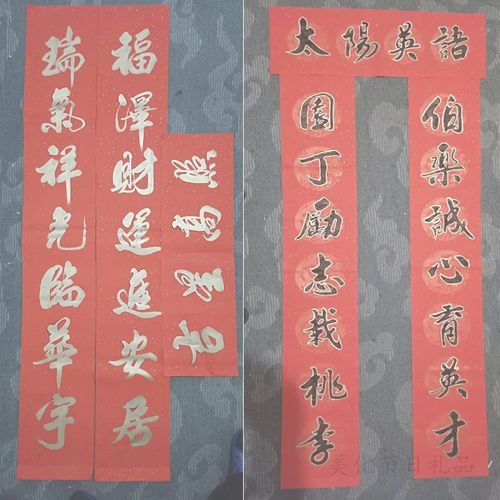 福澤財運進安居
瑞氣祥光臨華宇
吉星高照
太陽英語
伯樂誠心育英才
園丁勵志栽桃李
美化节日礼品